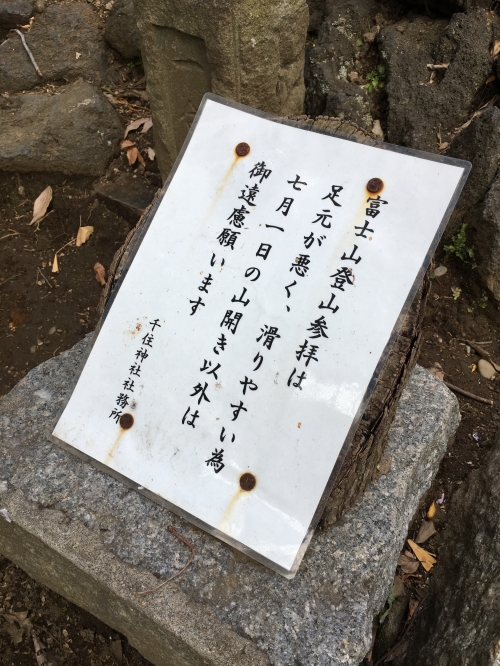 富士山登山参拝は
足元が悪く、滑りやすい為
七月一日の山開き以外は
御遠慮願います
千住神社社務所